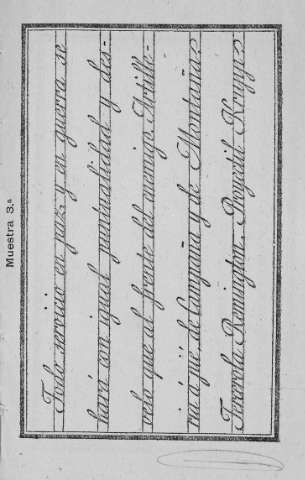 Muestra 3.ª
Todo servicio en paz y en guerra se
hará con igual puntualidad y des-
velo que al frente del enemigo. Artille-
ría á pié, de Campaña y de Montaña.
Tercerola Remington. Proyectil Krupp.